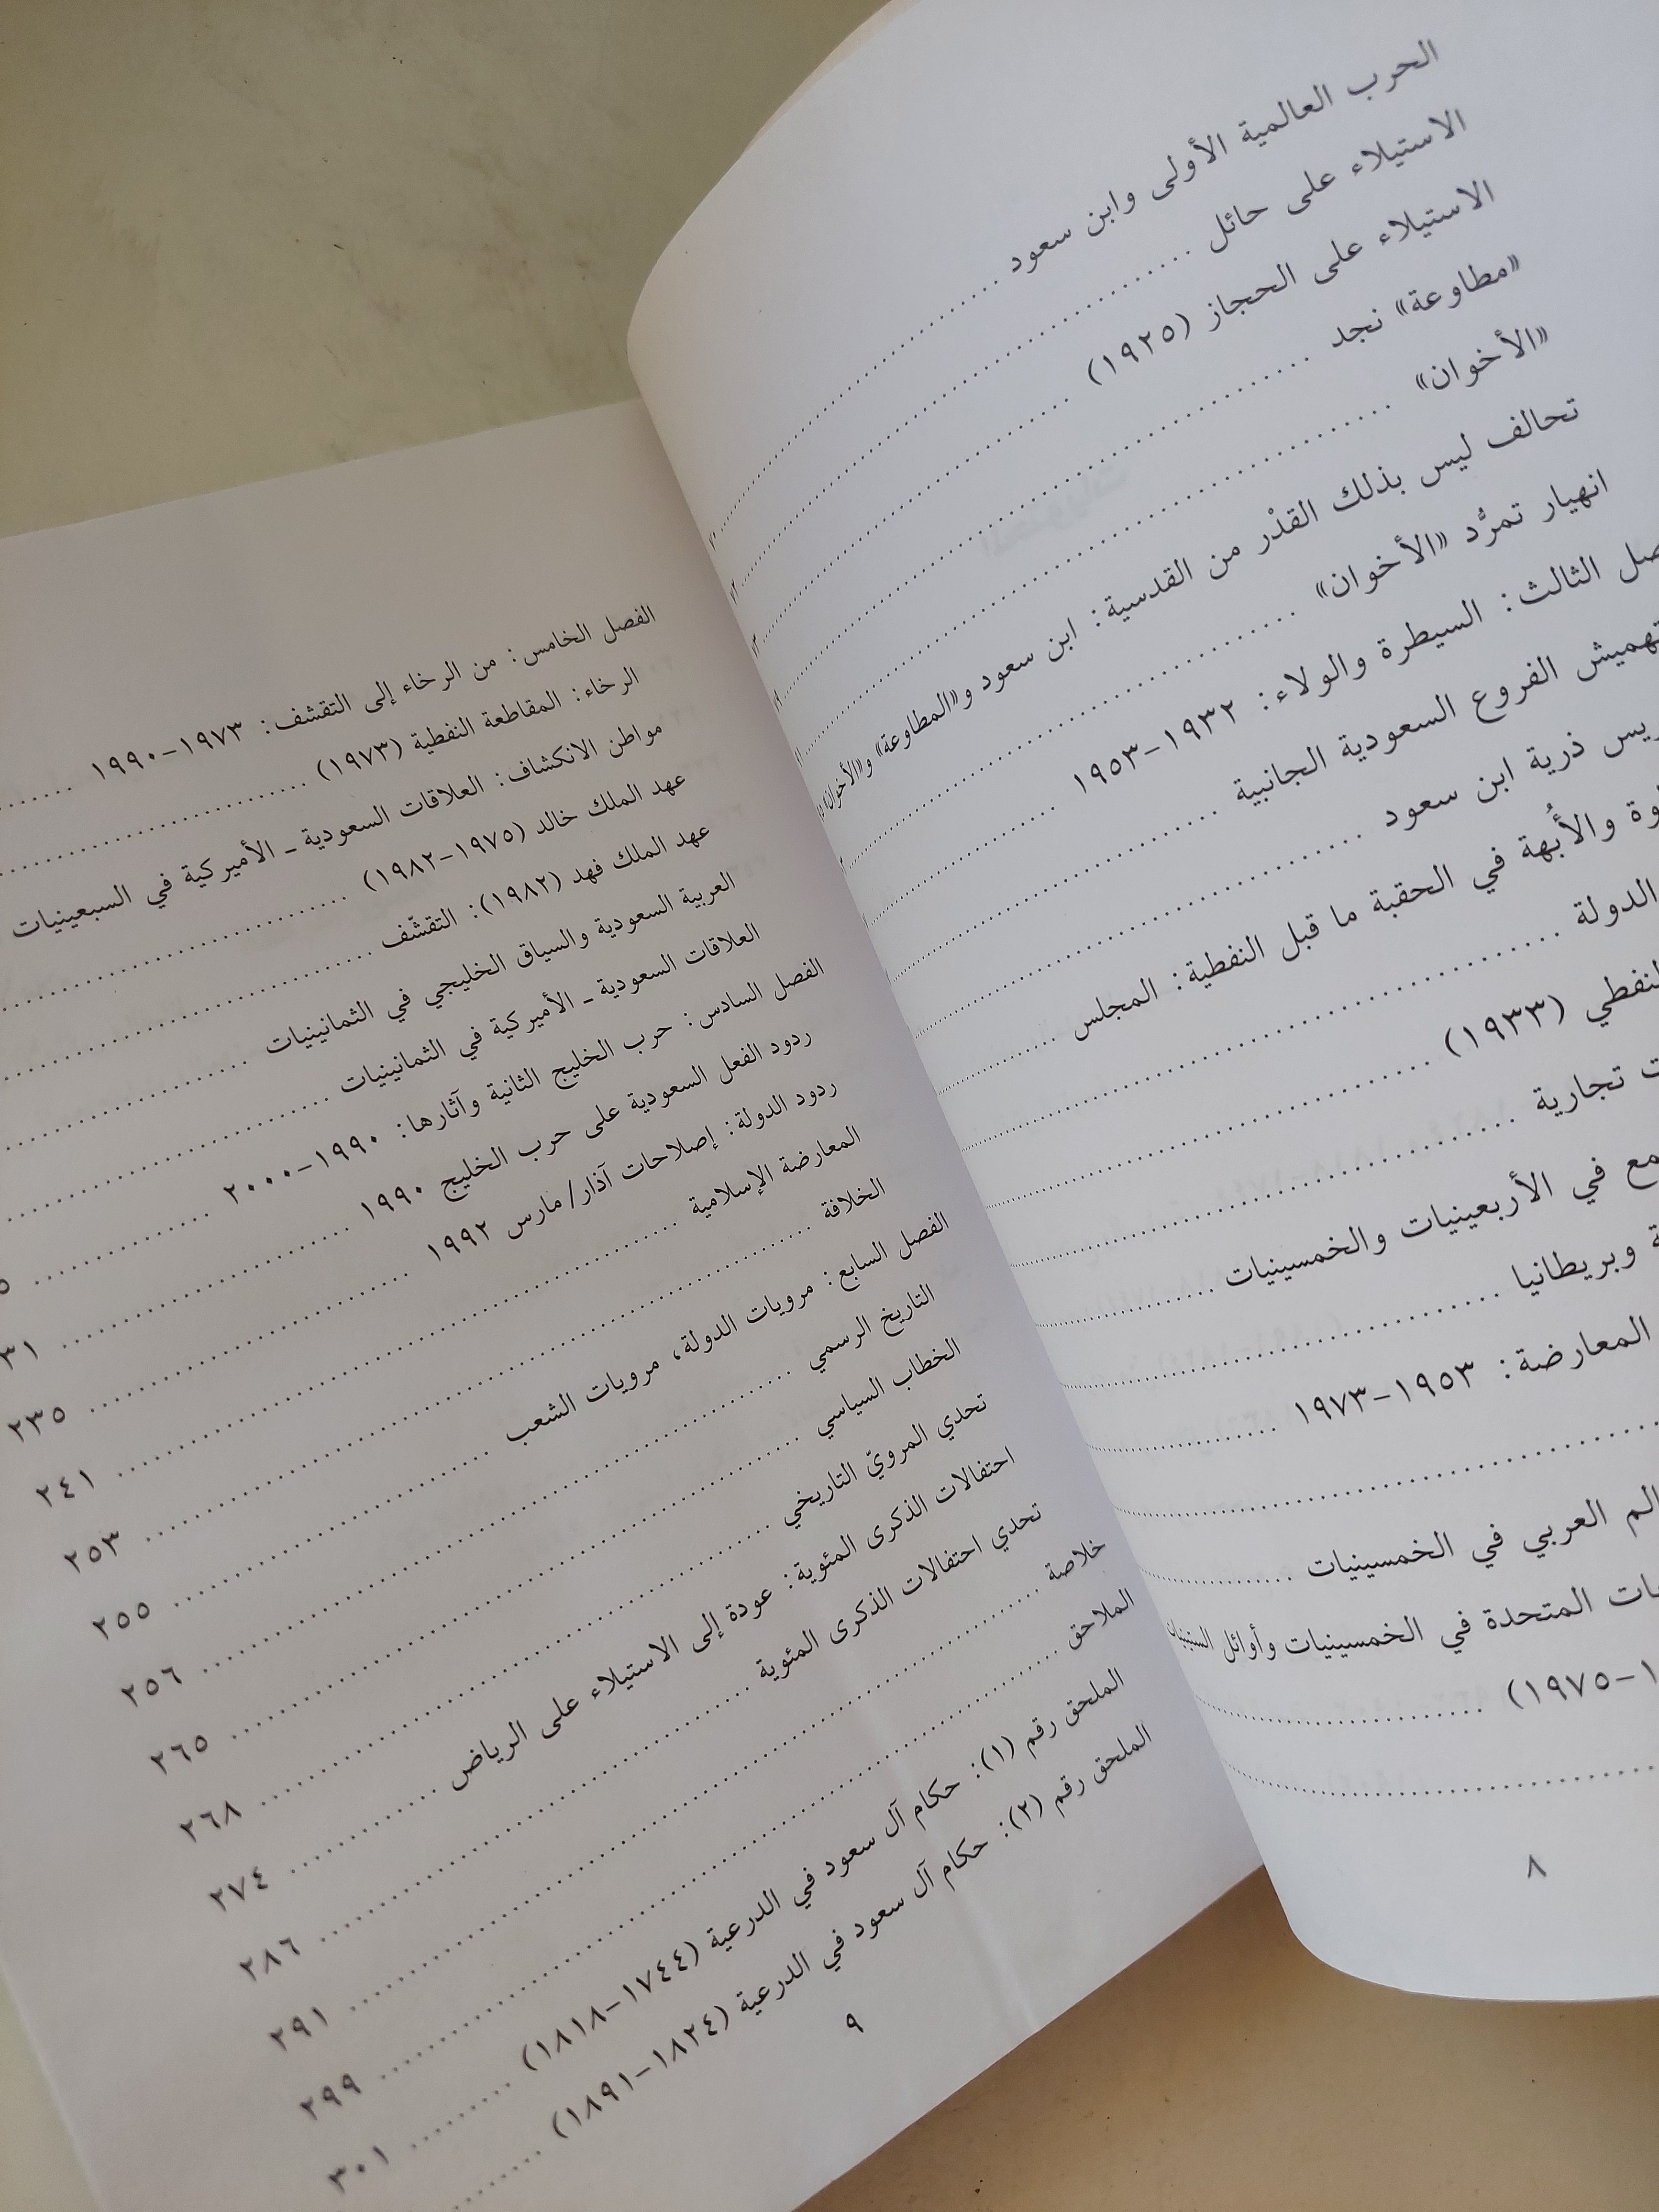 الحرب العالمية الأولى وابن سعود
الاستيلاء على حائل
الاستيلاء على الحجاز (١٩٢٥)
«مطاوعة» نجد
«الأخوان»
تحالف ليس بذلك القدْر من القدسية: ابن سعود و«المطاوعة» و«الأخوان»
انهيار تمرُّد «الأخوان»
الثالث: السيطرة والولاء: ١٩٣٢-١٩٥٣
تهميش الفروع السعودية الجانبية
ذرية ابن سعود
والأُبهة في الحقبة ما قبل النفطية: المجلس
الدولة
النفطي (١٩٣٣)
تجارية
في الأربعينيات والخمسينيات
وبريطانيا
المعارضة: ١٩٥٣-١٩٧٣
العربي في الخمسينيات
المتحدة في الخمسينيات وأوائل الستينيات
-١٩٧٥)
٨
الفصل الخامس: من الرخاء إلى التقشف: ١٩٧٣-١٩٩٠
الرخاء: المقاطعة النفطية (١٩٧٣)
مواطن الانكشاف: العلاقات السعودية ـ الأميركية في السبعينيات
عهد الملك خالد (١٩٧٥-١٩٨٢)
عهد الملك فهد (١٩٨٢): التقشّف
العربية السعودية والسياق الخليجي في الثمانينيات
العلاقات السعودية ـ الأميركية في الثمانينيات
الفصل السادس: حرب الخليج الثانية وآثارها: ١٩٩٠-٢٠٠٠
ردود الفعل السعودية على حرب الخليج ١٩٩٠
ردود الدولة: إصلاحات آذار/مارس ١٩٩٢ ٢٣٥
المعارضة الإسلامية ٢٤١
الخلافة ٢٥٣
الفصل السابع: مرويات الدولة، مرويات الشعب ٢٥٥
التاريخ الرسمي ٢٥٦
الخطاب السياسي ٢٦٥
تحدي المرويّ التاريخي ٢٦٨
احتفالات الذكرى المئوية: عودة إلى الاستيلاء على الرياض ٢٧٤
تحدي احتفالات الذكرى المئوية ٢٨٦
خلاصة ٢٩١
الملاحق ٢٩٩
الملحق رقم (١): حكام آل سعود في الدرعية (١٧٤٤-١٨١٨) ٣٠١
الملحق رقم (٢): حكام آل سعود في الدرعية (١٨٢٤-١٨٩١)
٩